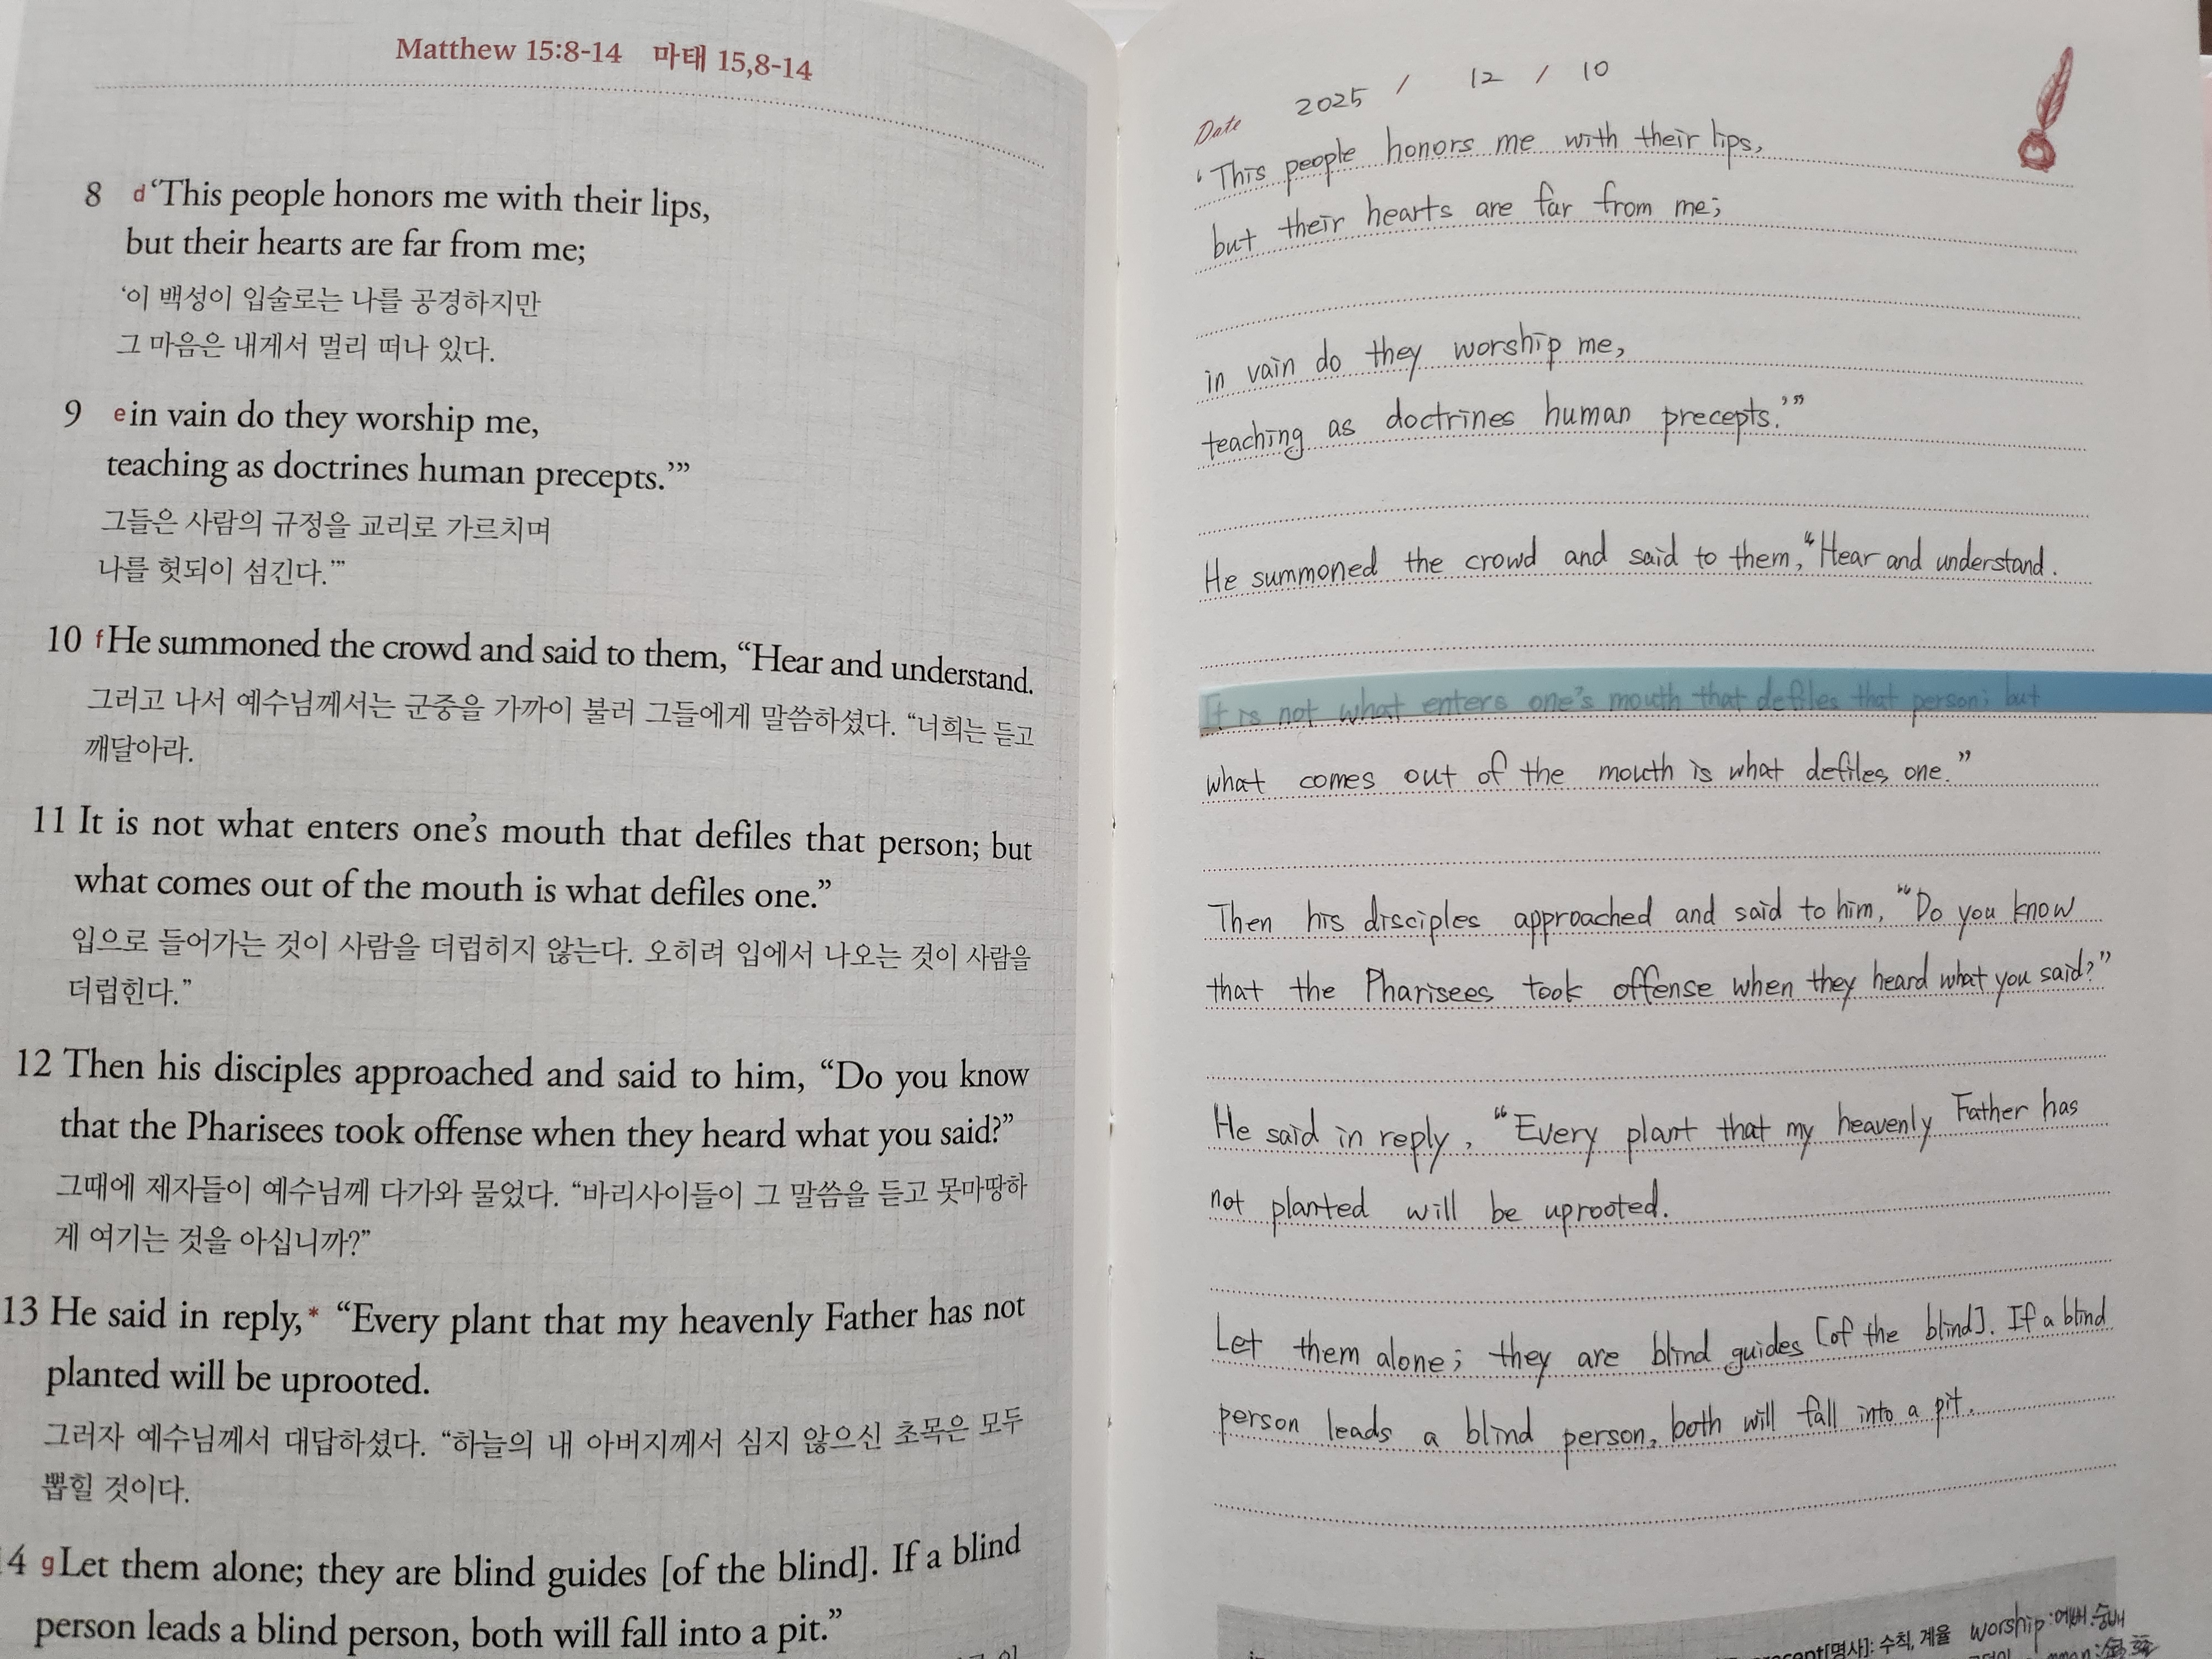 Matthew 15:8-14 마태 15,8-14
8 d‘This people honors me with their lips,
but their hearts are far from me;
‘이 백성이 입술로는 나를 공경하지만
그 마음은 내게서 멀리 떠나 있다.
9 e in vain do they worship me,
teaching as doctrines human precepts.’”
그들은 사람의 규정을 교리로 가르치며
나를 헛되이 섬긴다.’”
10 f He summoned the crowd and said to them, “Hear and understand.
그러고 나서 예수님께서는 군중을 가까이 불러 그들에게 말씀하셨다. “너희는 듣고
깨달아라.
11 It is not what enters one’s mouth that defiles that person; but
what comes out of the mouth is what defiles one.”
입으로 들어가는 것이 사람을 더럽히지 않는다. 오히려 입에서 나오는 것이 사람을
더럽힌다.”
12 Then his disciples approached and said to him, “Do you know
that the Pharisees took offense when they heard what you said?”
그때에 제자들이 예수님께 다가와 물었다. “바리사이들이 그 말씀을 듣고 못마땅하
게 여기는 것을 아십니까?”
13 He said in reply,* “Every plant that my heavenly Father has not
planted will be uprooted.
그러자 예수님께서 대답하셨다. “하늘의 내 아버지께서 심지 않으신 초목은 모두
뽑힐 것이다.
4 g Let them alone; they are blind guides [of the blind]. If a blind
person leads a blind person, both will fall into a pit.”
Date 2025 / 12 / 10
‘This people honors me with their lips,
but their hearts are far from me;
in vain do they worship me,
teaching as doctrines human precepts.’”
He summoned the crowd and said to them, “Hear and understand.
It is not what enters one’s mouth that defiles that person; but
what comes out of the mouth is what defiles one.”
Then his disciples approached and said to him, “Do you know
that the Pharisees took offense when they heard what you said?”
He said in reply, “Every plant that my heavenly Father has
not planted will be uprooted.
Let them alone; they are blind guides [of the blind]. If a blind
person leads a blind person, both will fall into a pit.
[명사]: 수칙, 계율 worship: 예배. 숭배